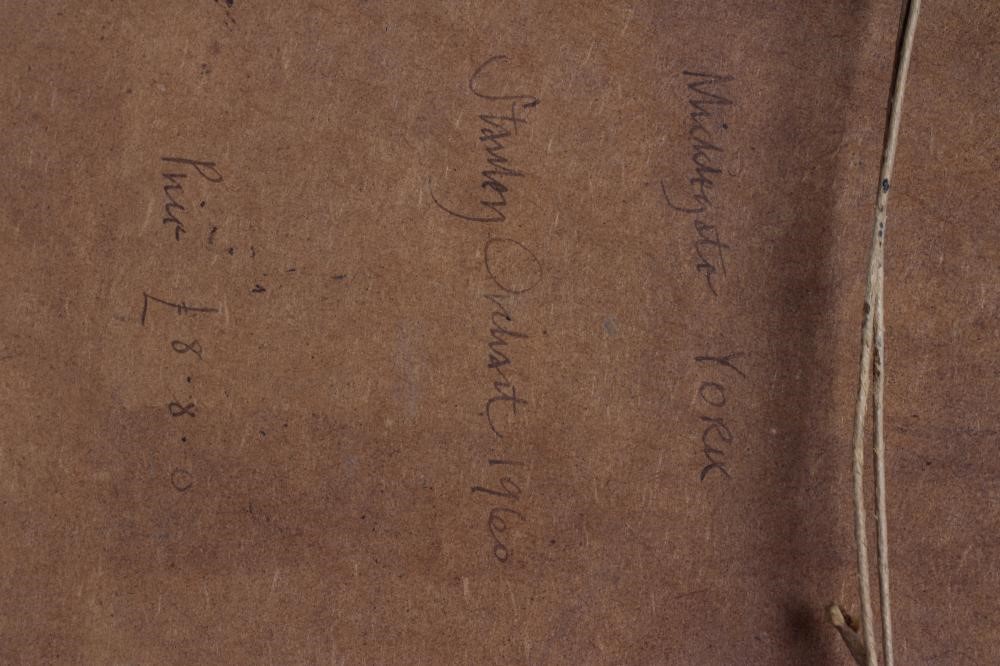 Micklegate YORK
Stanley Orchart. 1960
Price £8.8.0